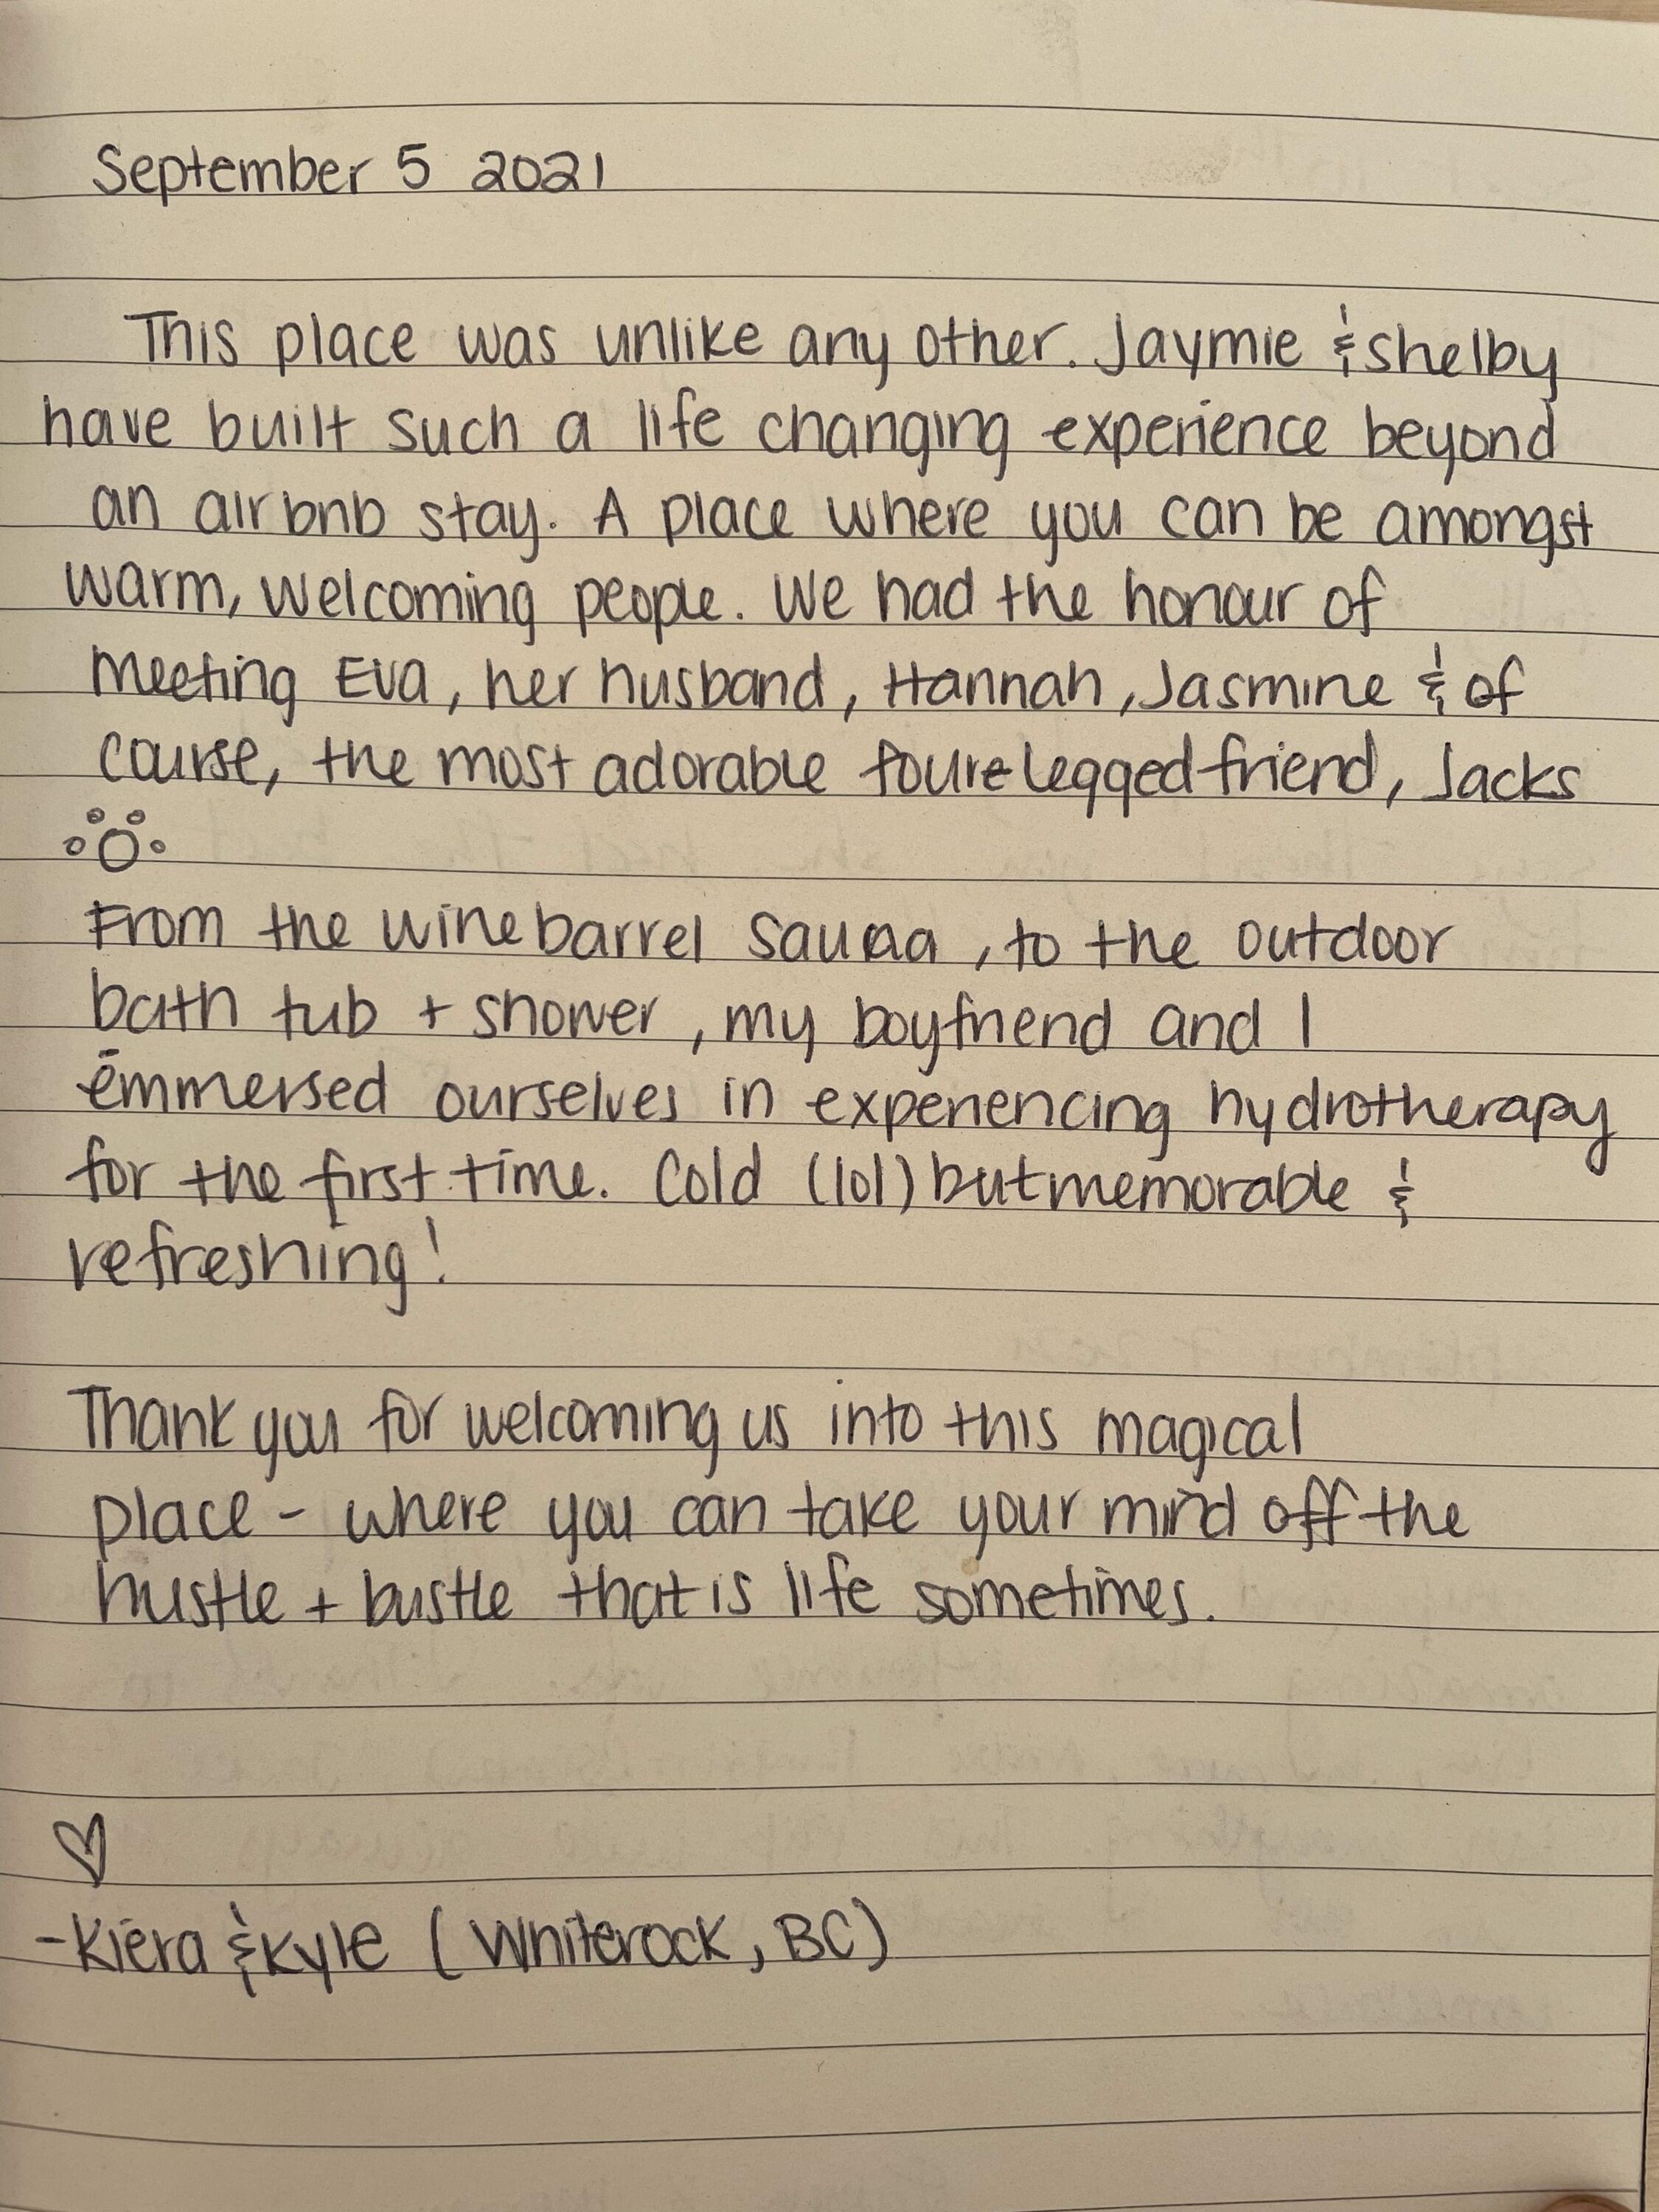 September 5 2021
This place was unlike any other. Jaymie & Shelby
have built such a life changing experience beyond
an airbnb stay. A place where you can be amongst
warm, welcoming people. We had the honour of
meeting Eva, her husband, Hannah, Jasmine & of
course, the most adorable foure legged friend, Jacks
From the wine barrel sauna, to the outdoor
bath tub + shower, my boyfriend and I
emmersed ourselves in experiencing hydrotherapy
for the first time. Cold (lol) but memorable &
refreshing!
Thank you for welcoming us into this magical
place - where you can take your mind off the
hustle + bustle that is life sometimes.
- Kiera & Kyle (Whiterock, BC)